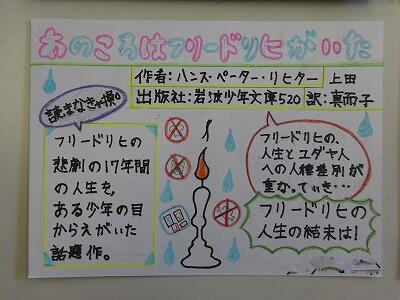 あのころはフリードリヒがいた
作者:ハンス・ペーター・リヒター 上田
出版社:岩波少年文庫520 訳:真而子
読まなきゃ損。
フリードリヒの
悲劇の17年間
の人生を、
ある少年の目
からえがいた
話題作。
フリードリヒの、
人生とユダヤ人
への人種差別が
重なっていき…
フリードリヒの
人生の結末は!